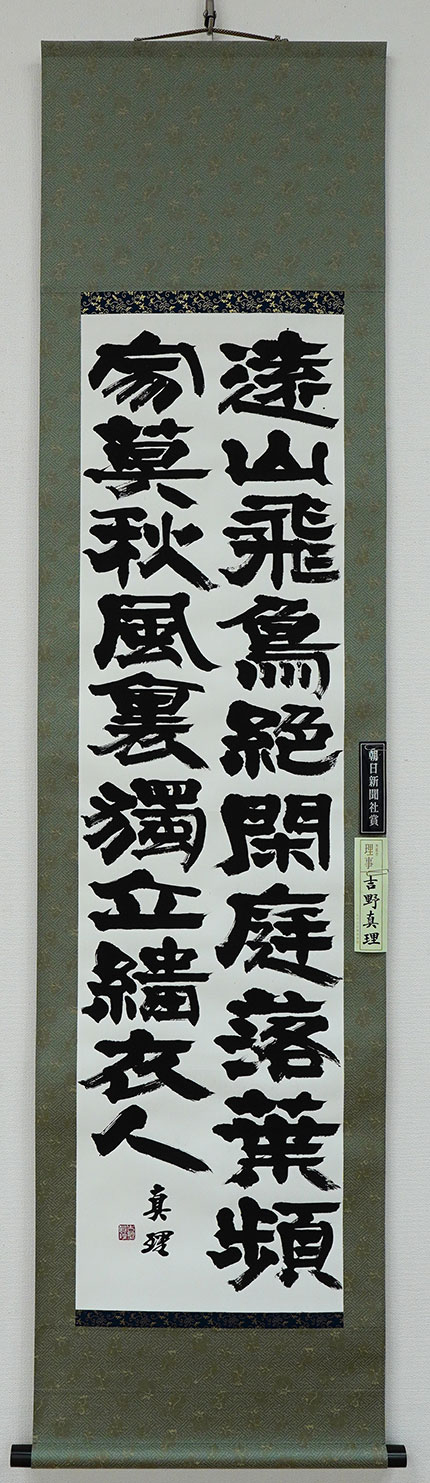 遠山飛鳥絶閑庭落葉頻
寂莫秋風裏獨立緇衣人
真理
朝日新聞社賞
理事
吉野真理